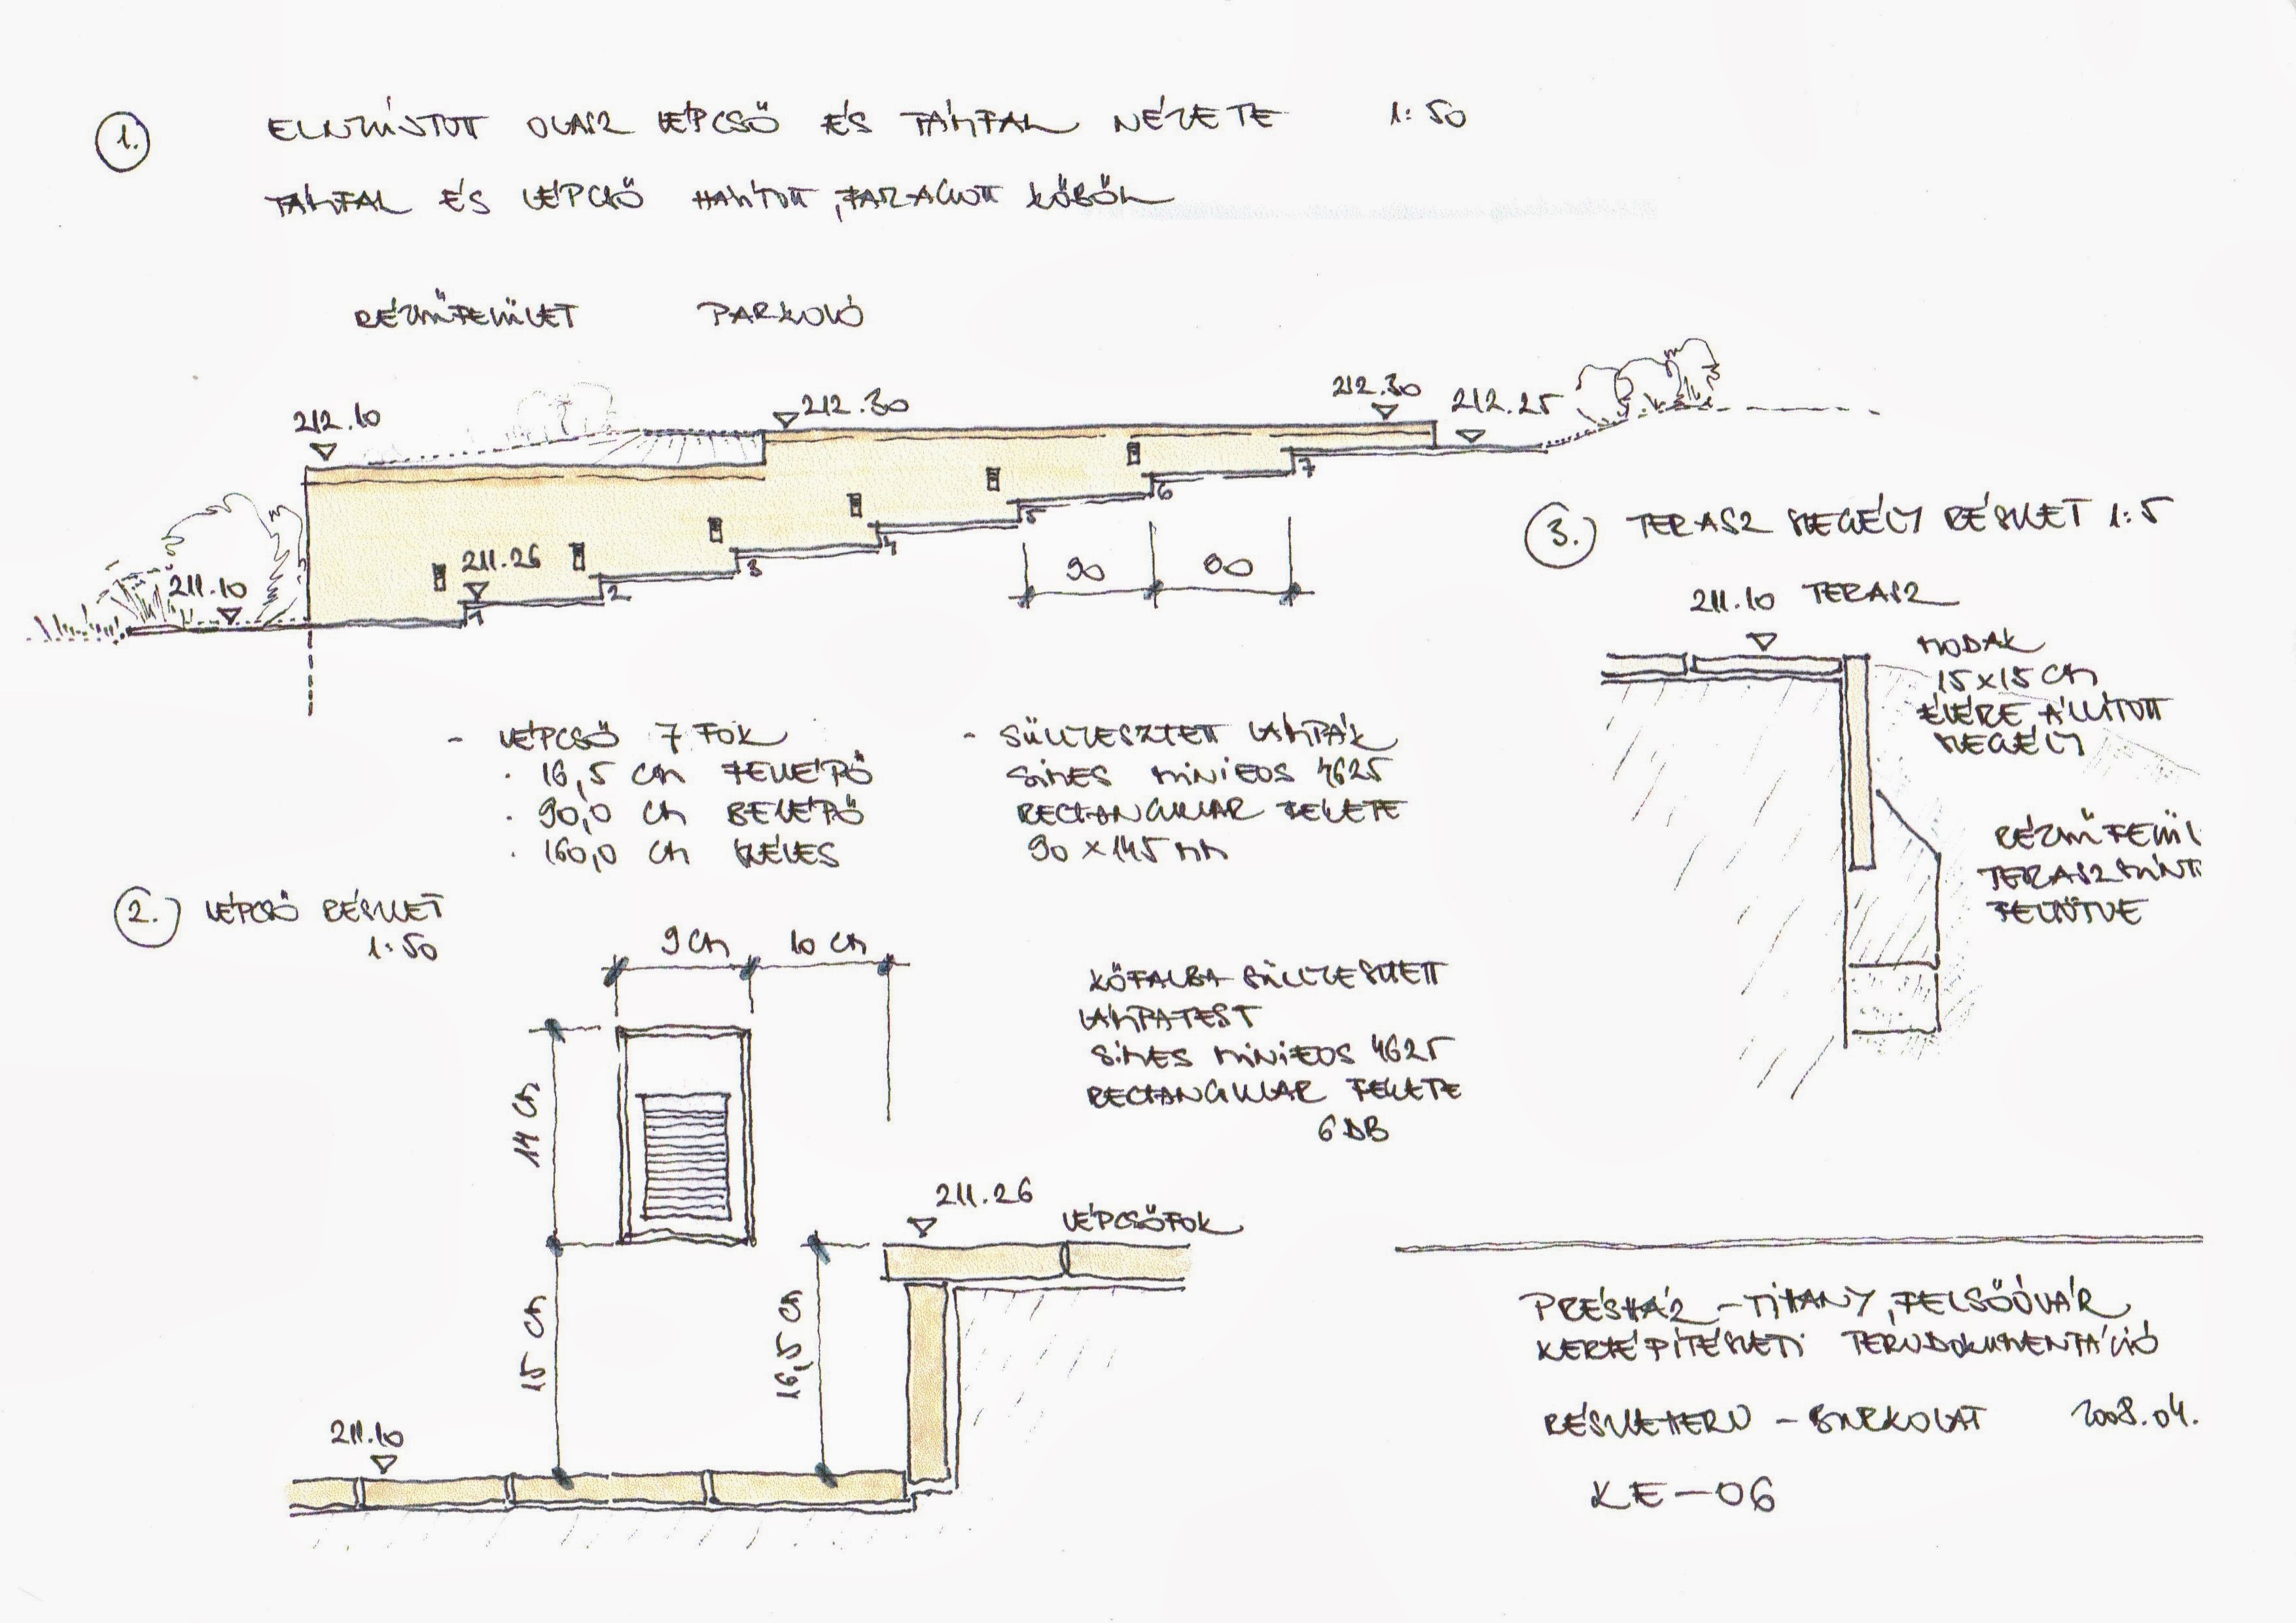 1. ELNYÚJTOTT OLASZ LÉPCSŐ ÉS TÁMFAL NÉZETE 1:50
TÁMFAL ÉS LÉPCSŐ HASÍTOTT, FARAGOTT KŐBŐL
RÉZSŰFELÜLET PARKOLÓ
212.10
212.30
212.30
212.25
211.10
211.26
1
2
3
4
5
6
7
90
90
- LÉPCSŐ 7 FOK
· 16,5 cm FELLÉPŐ
· 90,0 cm BELÉPŐ
· 160,0 cm SZÉLES
- SÜLLYESZTETT LÁMPÁK
SIMES MINIEOS 4625
RECTANGULAR FEKETE
90 x 145 mm
2. LÉPCSŐ RÉSZLET
1:50
9 cm
10 cm
14 cm
15 cm
16,5 cm
KŐFALBA SÜLLYESZTETT
LÁMPATEST
SIMES MINIEOS 4625
RECTANGULAR FEKETE
6 DB
211.26
LÉPCSŐFOK
211.10
3. TERASZ SZEGÉLY RÉSZLET 1:5
211.10 TERASZ
15x15 cm
ÉLÉRE ÁLLÍTOTT
SZEGÉLY
RÉZSŰFELÜL
TERASZSZINT
FELTÖLTVE
PRÉSHÁZ - TIHANY, FELSŐÓVÁR
KERTÉPÍTÉSZETI TERVDOKUMENTÁCIÓ
RÉSZLETTERV - BURKOLAT 2008.04.
KE-06